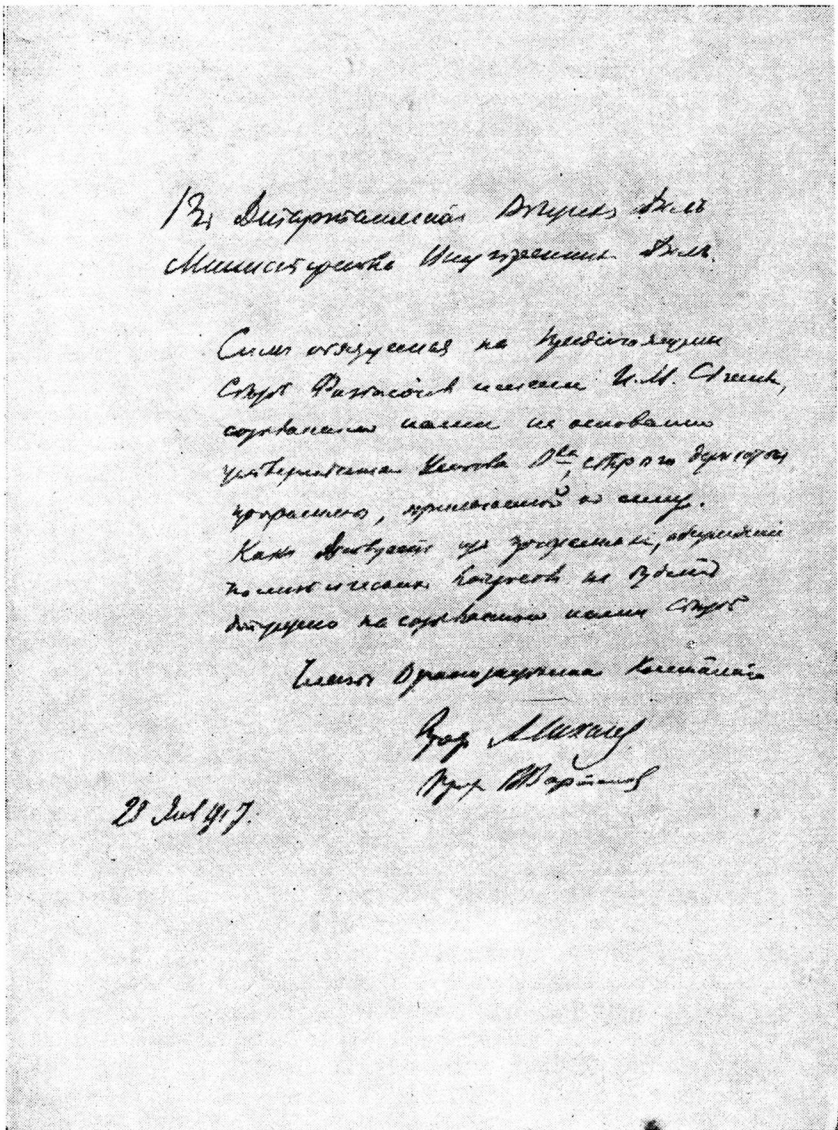 Въ Департаментъ Общихъ Дѣлъ
Министерства Внутреннихъ Дѣлъ.
Симъ обязуемся на предстоящемъ
Съѣздѣ Физіологовъ имени И. М. Сѣченова,
созываемомъ нами на основаніи
утвержденнаго Устава О-ва, строго держаться
программы, прилагаемой къ сему.
Какъ явствуетъ изъ программы, обсужденіе
политическихъ вопросовъ не будетъ
допущено на созываемомъ нами Съѣздѣ
Члены Организаціоннаго Комитета
Проф.
Проф. В Вартановъ
28 Янв 1917.